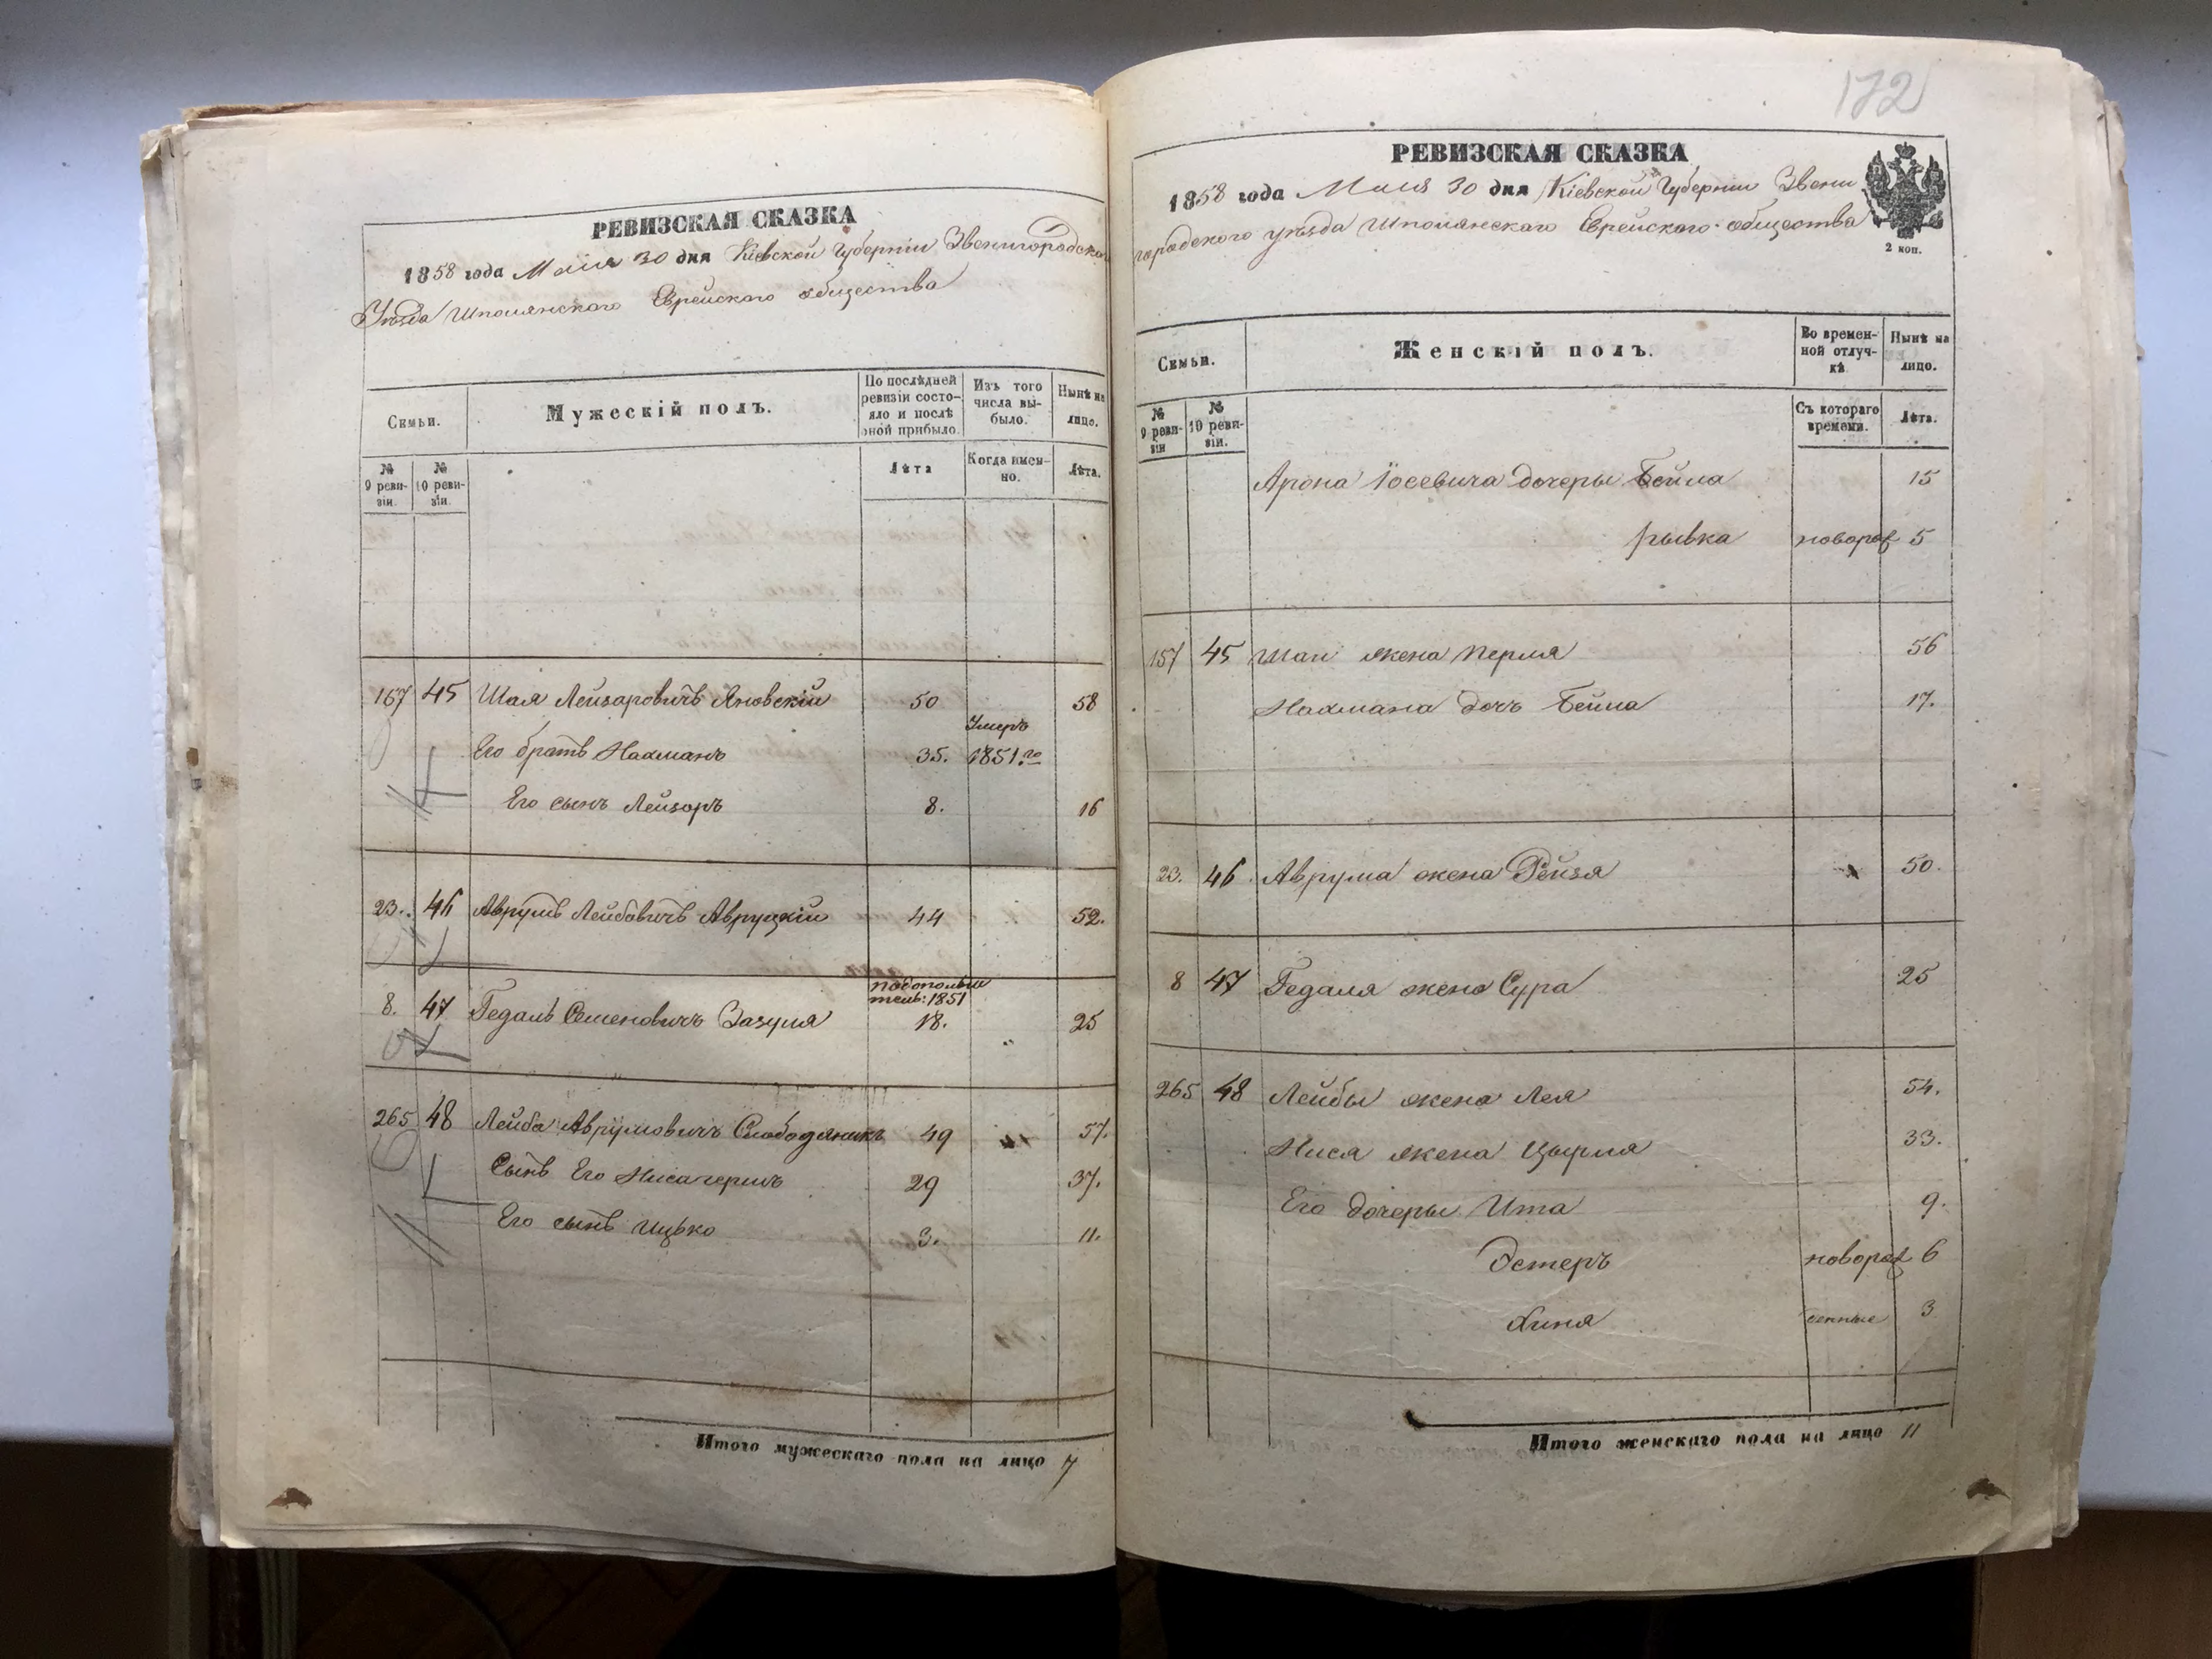 РЕВИЗСКАЯ СКАЗКА
1858 года Маія 30 дня Кіевской Губерніи Звенигородского
Уѣзда Шполянского Еврейского общества
Семьи.
Мужескій полъ.
По послѣдней ревизіи состояло и послѣ оной прибыло.
Изъ того числа выбыло.
Нынѣ на лицо.
№ 9 ревизіи.
№ 10 ревизіи.
Лѣта
Когда именно.
Лѣта.
167 45 Шая Лейзаровичъ Яновскій 50 58
Его братъ Нахманъ 35. Умеръ 1851.го
Его сынъ Лейзоръ 8. 16
23. 46 Аврумъ Лейбовичъ Авруцкій 44 52.
8. 47 Гедаль Семеновичъ Зазуля 18. 25
тель: 1851
265 48 Лейба Аврумовичъ Слободяникъ 49 57.
Сынъ Его 29 37.
Его сынъ Ицько 3. 11.
Итого мужескаго пола на лицо 7
172
РЕВИЗСКАЯ СКАЗКА
1858 года Маія 30 дня Кіевской Губерніи Звени
городского уѣзда Шполянского Еврейского общества
2 коп.
Семьи.
Женскій полъ.
Во временной отлучкѣ.
Нынѣ на лицо.
№ 9 ревизіи
№ 10 ревизіи.
Съ котораго времени.
Лѣта.
Арона Іосевича дочеры Бейла 15
рывка новорож 5
157 45 Шаи жена Перля 56
Нахмана дочь Бейла 17.
23. 46 Аврума жена Рейзя 50.
8 47 Гедаля жена Сура 25
265 48 Лейбы жена Лея 54.
Нися жена Цырля 33.
Его дочеры Ита 9.
Эстеръ новорож 6
Хиня денные 3
Итого женскаго пола на лицо 11